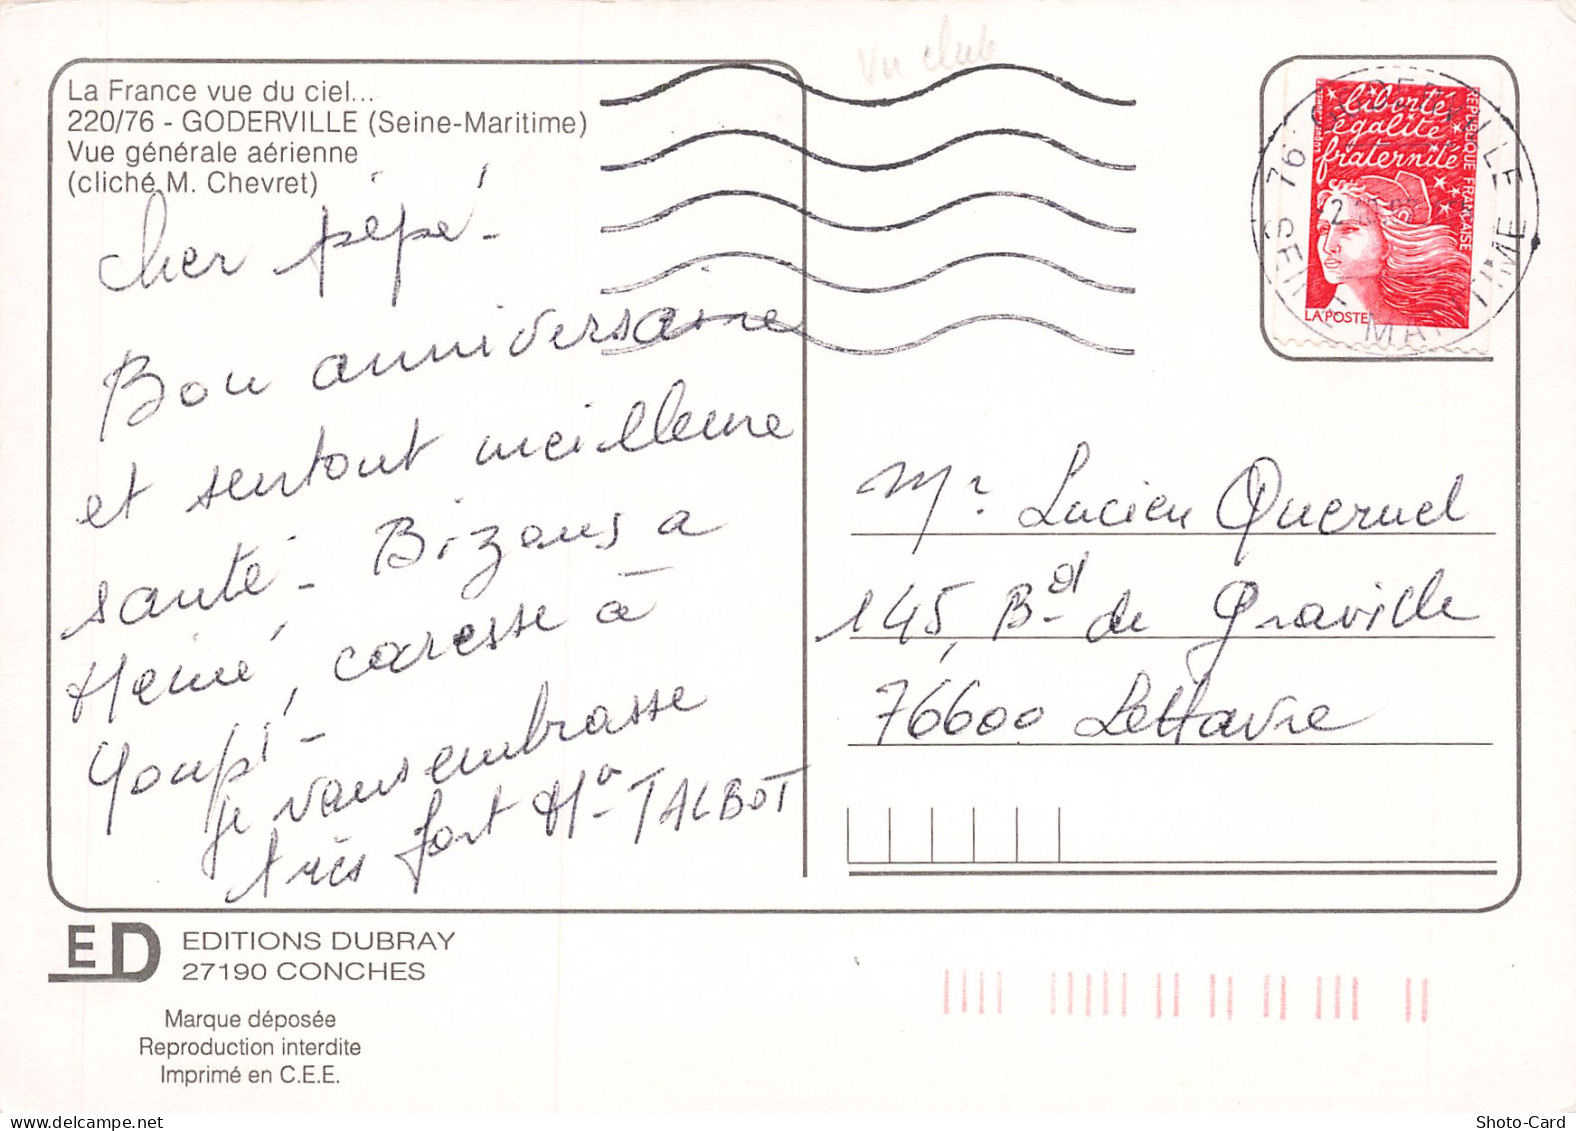 Vu club
La France vue du ciel...
220/76 - GODERVILLE (Seine-Maritime)
Vue générale aérienne
(cliché M. Chevret)
Cher pépé -
Bon anniversaire
et surtout meilleure
santé - Bizous a
Mémé, caresse à
Youpi -
je vous embrasse
très fort Ma TALBOT
liberté
égalité
fraternité
REPUBLIQUE FRANÇAISE
LA POSTE
76 GODERVILLE
SEINE-MARITIME
Mr Lucien Queruel
145, Bd de Graville
76600 Le Havre
ED
EDITIONS DUBRAY
27190 CONCHES
Marque déposée
Reproduction interdite
Imprimé en C.E.E.
Shoto-Card